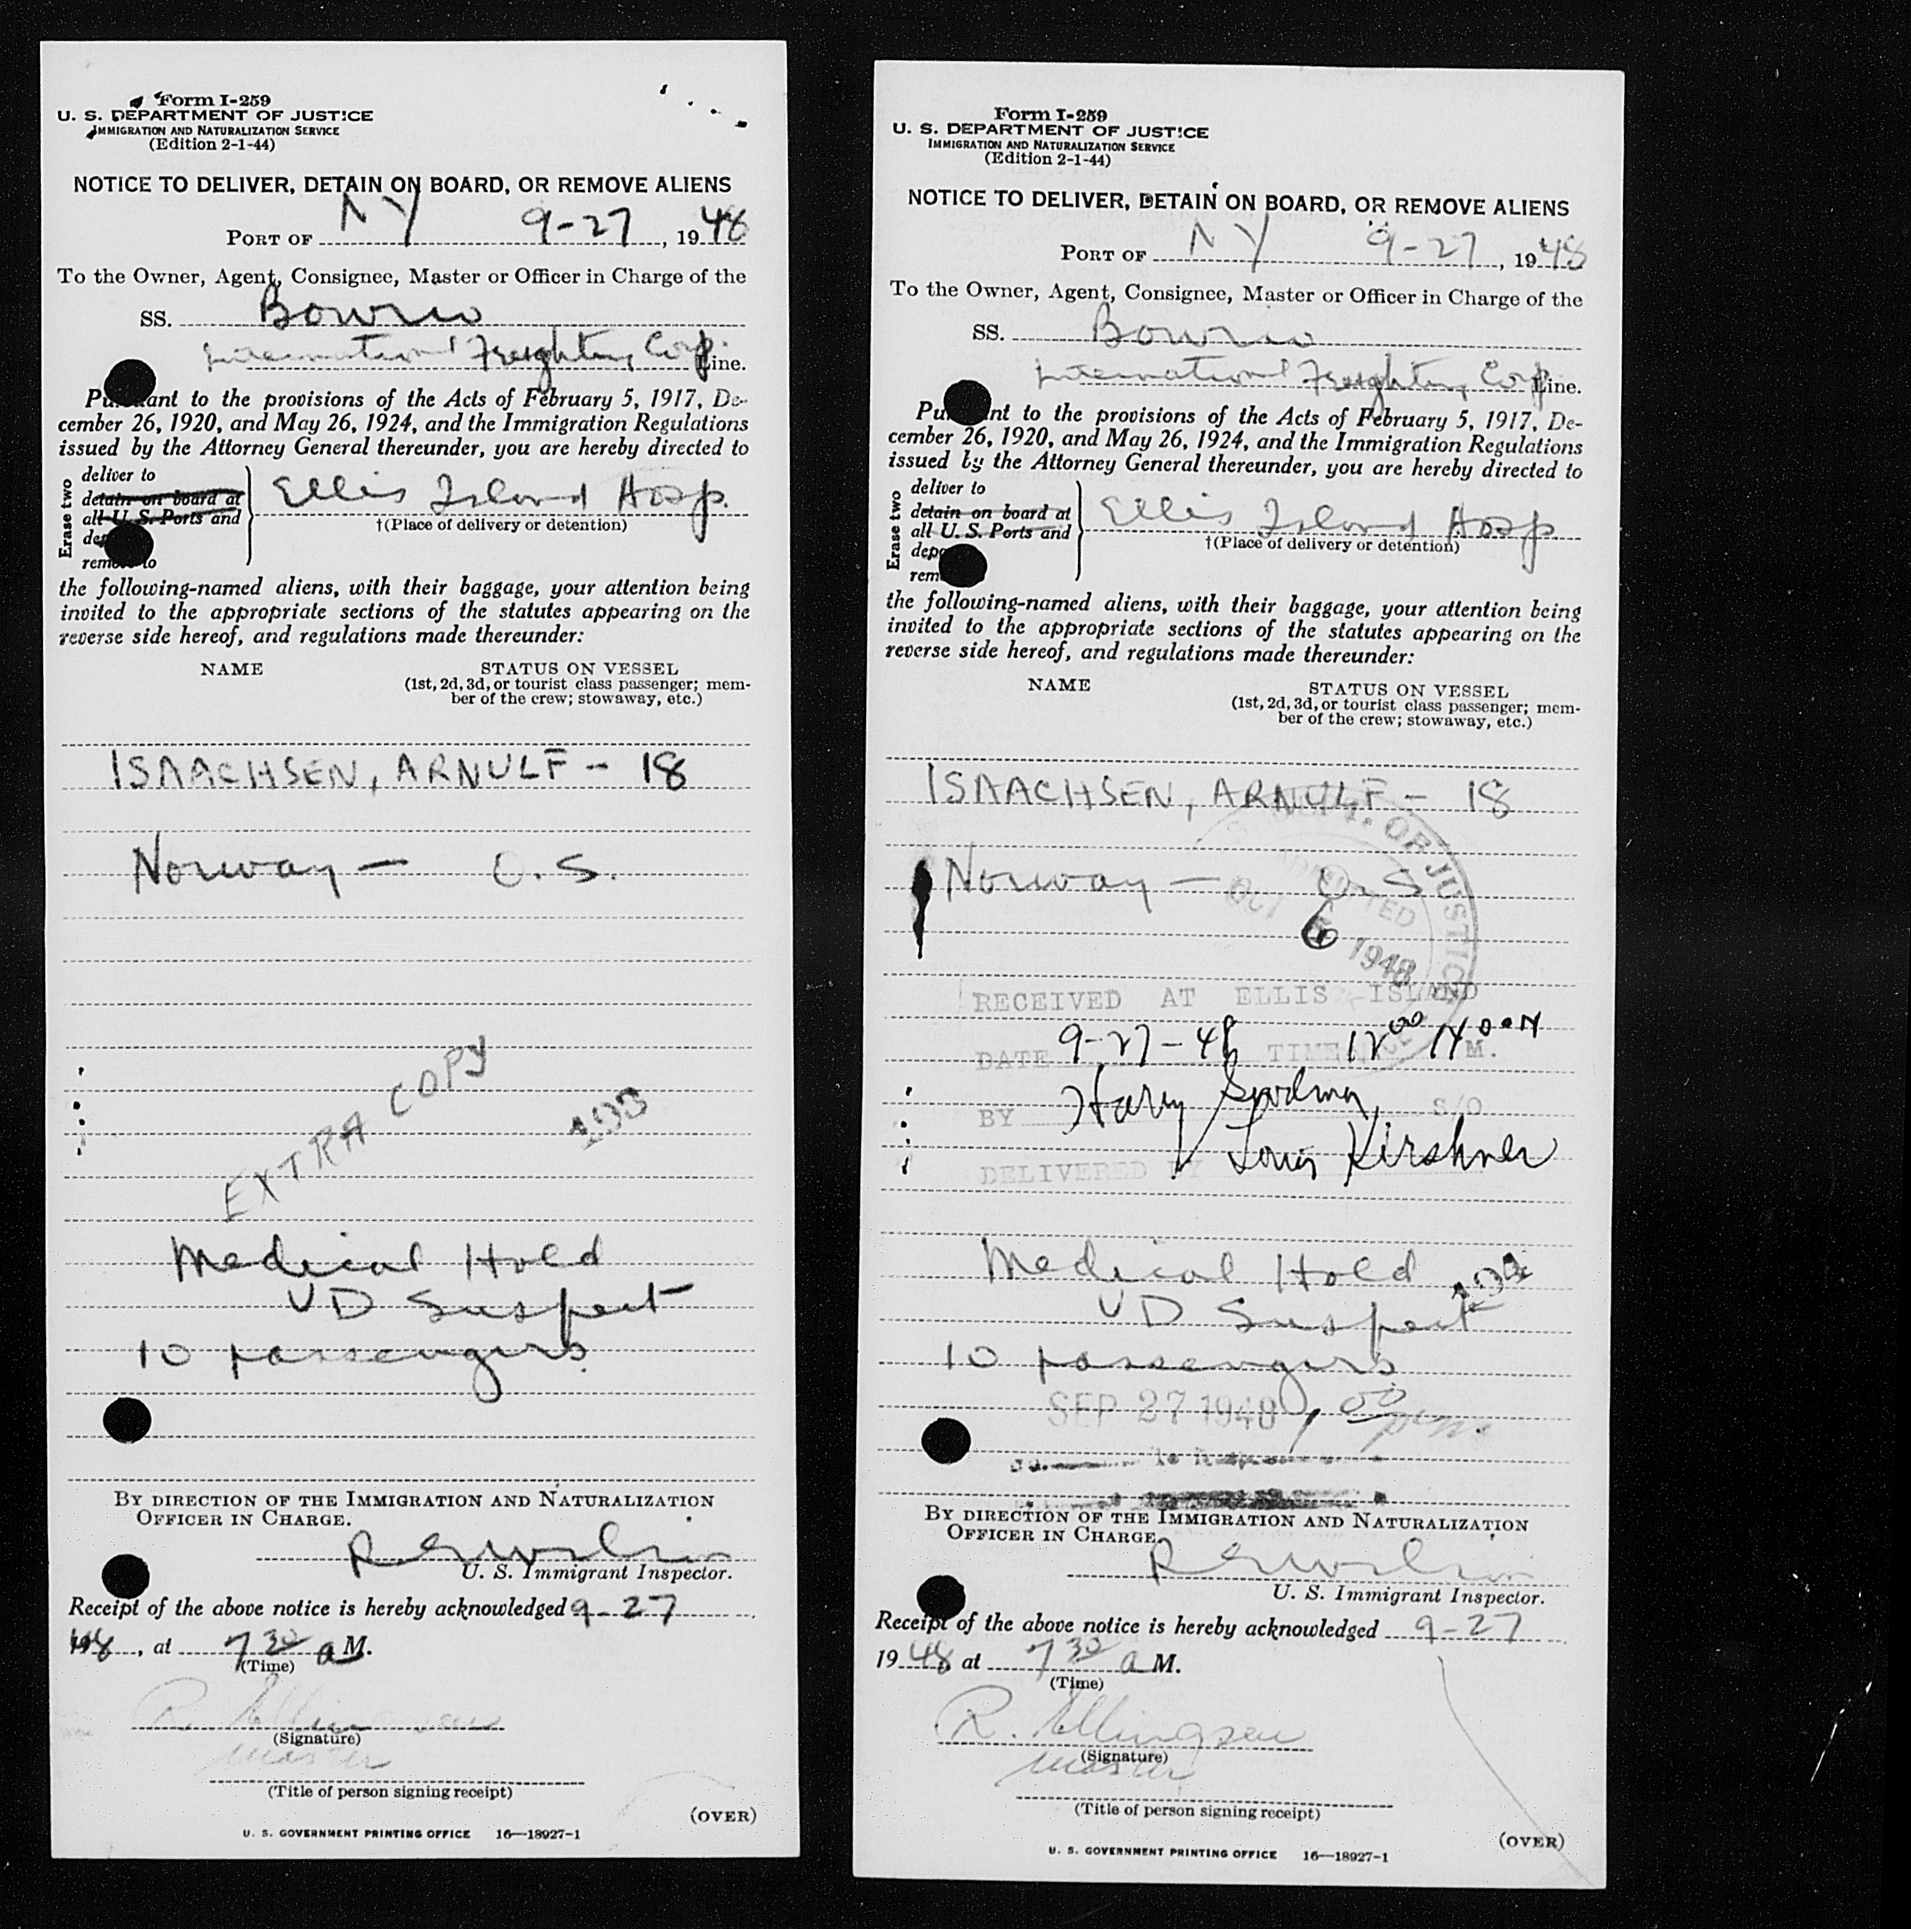 Form I-259
U. S. DEPARTMENT OF JUSTICE
IMMIGRATION AND NATURALIZATION SERVICE
(Edition 2-1-44)
NOTICE TO DELIVER, DETAIN ON BOARD, OR REMOVE ALIENS
PORT OF NY 9-27, 1948
To the Owner, Agent, Consignee, Master or Officer in Charge of the
SS.
International Freighting Corp. Line.
Pursuant to the provisions of the Acts of February 5, 1917, De-
cember 26, 1920, and May 26, 1924, and the Immigration Regulations
issued by the Attorney General thereunder, you are hereby directed to
Erase two
deliver to
detain on board at
all U. S. Ports and
remove to
Ellis Island Hosp.
†(Place of delivery or detention)
the following-named aliens, with their baggage, your attention being
invited to the appropriate sections of the statutes appearing on the
reverse side hereof, and regulations made thereunder:
NAME STATUS ON VESSEL
(1st, 2d, 3d, or tourist class passenger; mem-
ber of the crew; stowaway, etc.)
ISAACHSEN, ARNULF - 18
Norway - O.S.
EXTRA COPY
Medical Hold
VD Suspect
10 passengers
BY DIRECTION OF THE IMMIGRATION AND NATURALIZATION
OFFICER IN CHARGE.
U. S. Immigrant Inspector.
Receipt of the above notice is hereby acknowledged 9-27
1948, at 7 30 a M.
(Time)
R. Ellingsen
(Signature)
Master
(Title of person signing receipt)
(OVER)
U. S. GOVERNMENT PRINTING OFFICE 16—18927-1
Form I-259
U. S. DEPARTMENT OF JUSTICE
IMMIGRATION AND NATURALIZATION SERVICE
(Edition 2-1-44)
NOTICE TO DELIVER, DETAIN ON BOARD, OR REMOVE ALIENS
PORT OF NY 9-27, 1948
To the Owner, Agent, Consignee, Master or Officer in Charge of the
SS.
International Freighting Corp Line.
Pursuant to the provisions of the Acts of February 5, 1917, De-
cember 26, 1920, and May 26, 1924, and the Immigration Regulations
issued by the Attorney General thereunder, you are hereby directed to
Erase two
deliver to
detain on board at
all U. S. Ports and
Ellis Island Hosp
†(Place of delivery or detention)
the following-named aliens, with their baggage, your attention being
invited to the appropriate sections of the statutes appearing on the
reverse side hereof, and regulations made thereunder:
NAME STATUS ON VESSEL
(1st, 2d, 3d, or tourist class passenger; mem-
ber of the crew; stowaway, etc.)
ISAACHSEN, ARNULF - 18
DEPT. OF JUSTICE
Norway - O.S
ADMITTED
OCT 6 1948
RECEIVED AT ELLIS ISLAND
DATE 9-27-48 TIME 12 00 NOON M.
BY Harry S/O
DELIVERED BY Louis Kirshner
Medical Hold
VD Suspect
10 passengers
SEP 27 1948 1, 00 pm.
BY DIRECTION OF THE IMMIGRATION AND NATURALIZATION
OFFICER IN CHARGE.
U. S. Immigrant Inspector.
Receipt of the above notice is hereby acknowledged 9-27
1948, at 7 30 a M.
(Time)
R. Ellingsen
(Signature)
Master
(Title of person signing receipt)
(OVER)
U. S. GOVERNMENT PRINTING OFFICE 16—18927-1